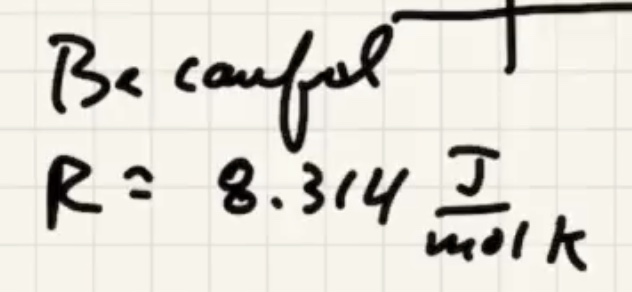 Be careful
R = 8.314 J/mol K